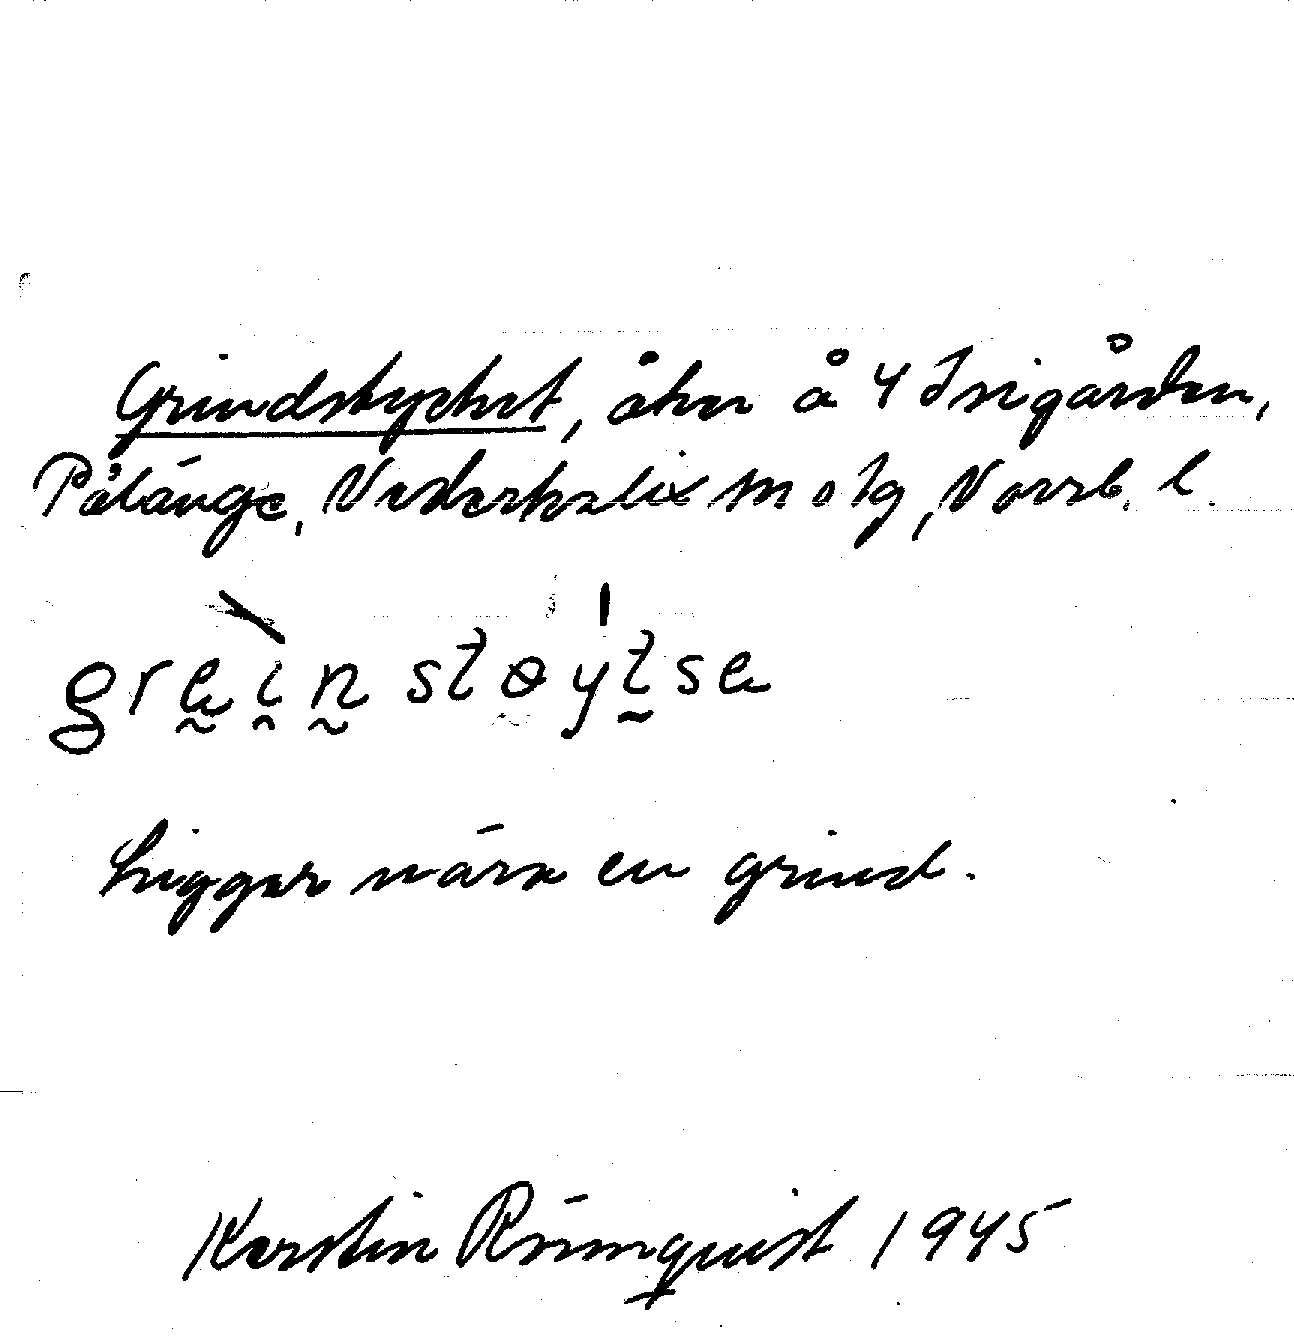 Grindstycket, åker å 4 Isigården,
Pålänge, Nederkalix sn o tg, Norrb. l.
greinstøytse
Ligger nära en grind.
Kerstin Römquist 1945